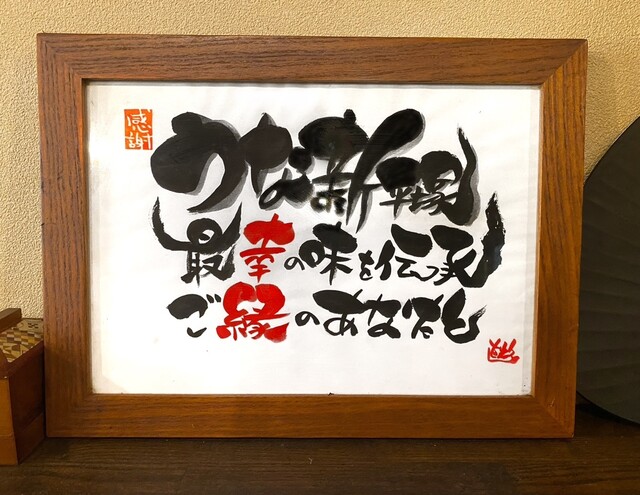 感謝
うな新 平塚
最幸の味を伝承
ご縁のあなたと